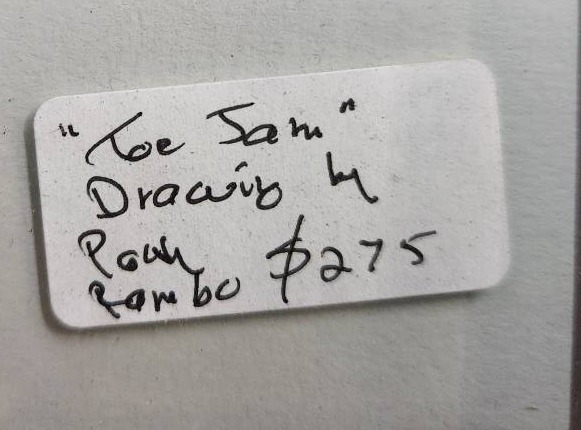 "Toe Jam"
Drawing by
Rambo $275